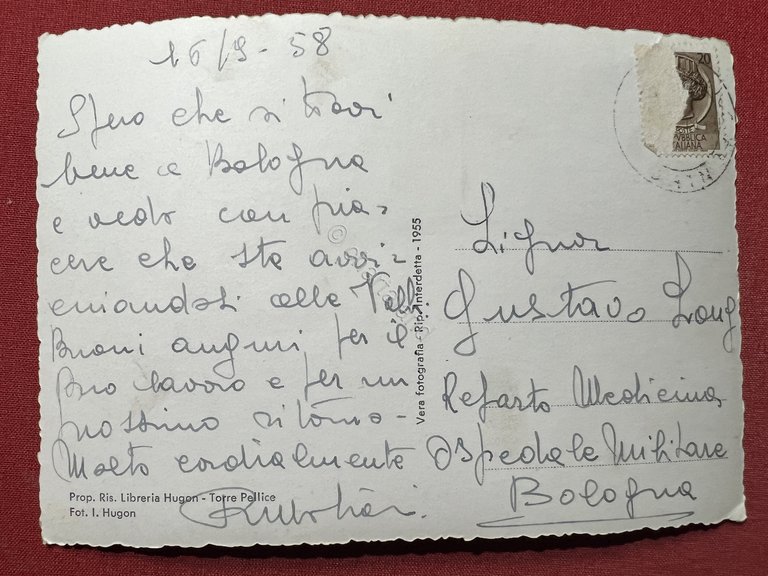 16/9 - 58
Spero che si trovi
bene a Bologna
e vedo con pia-
cere che sta avvi-
cinandosi alle Valli
Buoni auguri per il
Suo lavoro e per un
prossimo ritorno -
Molto cordialmente
Prop. Ris. Libreria Hugon - Torre Pellice
Fot. I. Hugon
Vera fotografia - Rip. Interdetta - 1955
20
PUBBLICA
ITALIANA
Signor
Gustavo Long
Reparto Medicina
Ospedale Militare
Bologna